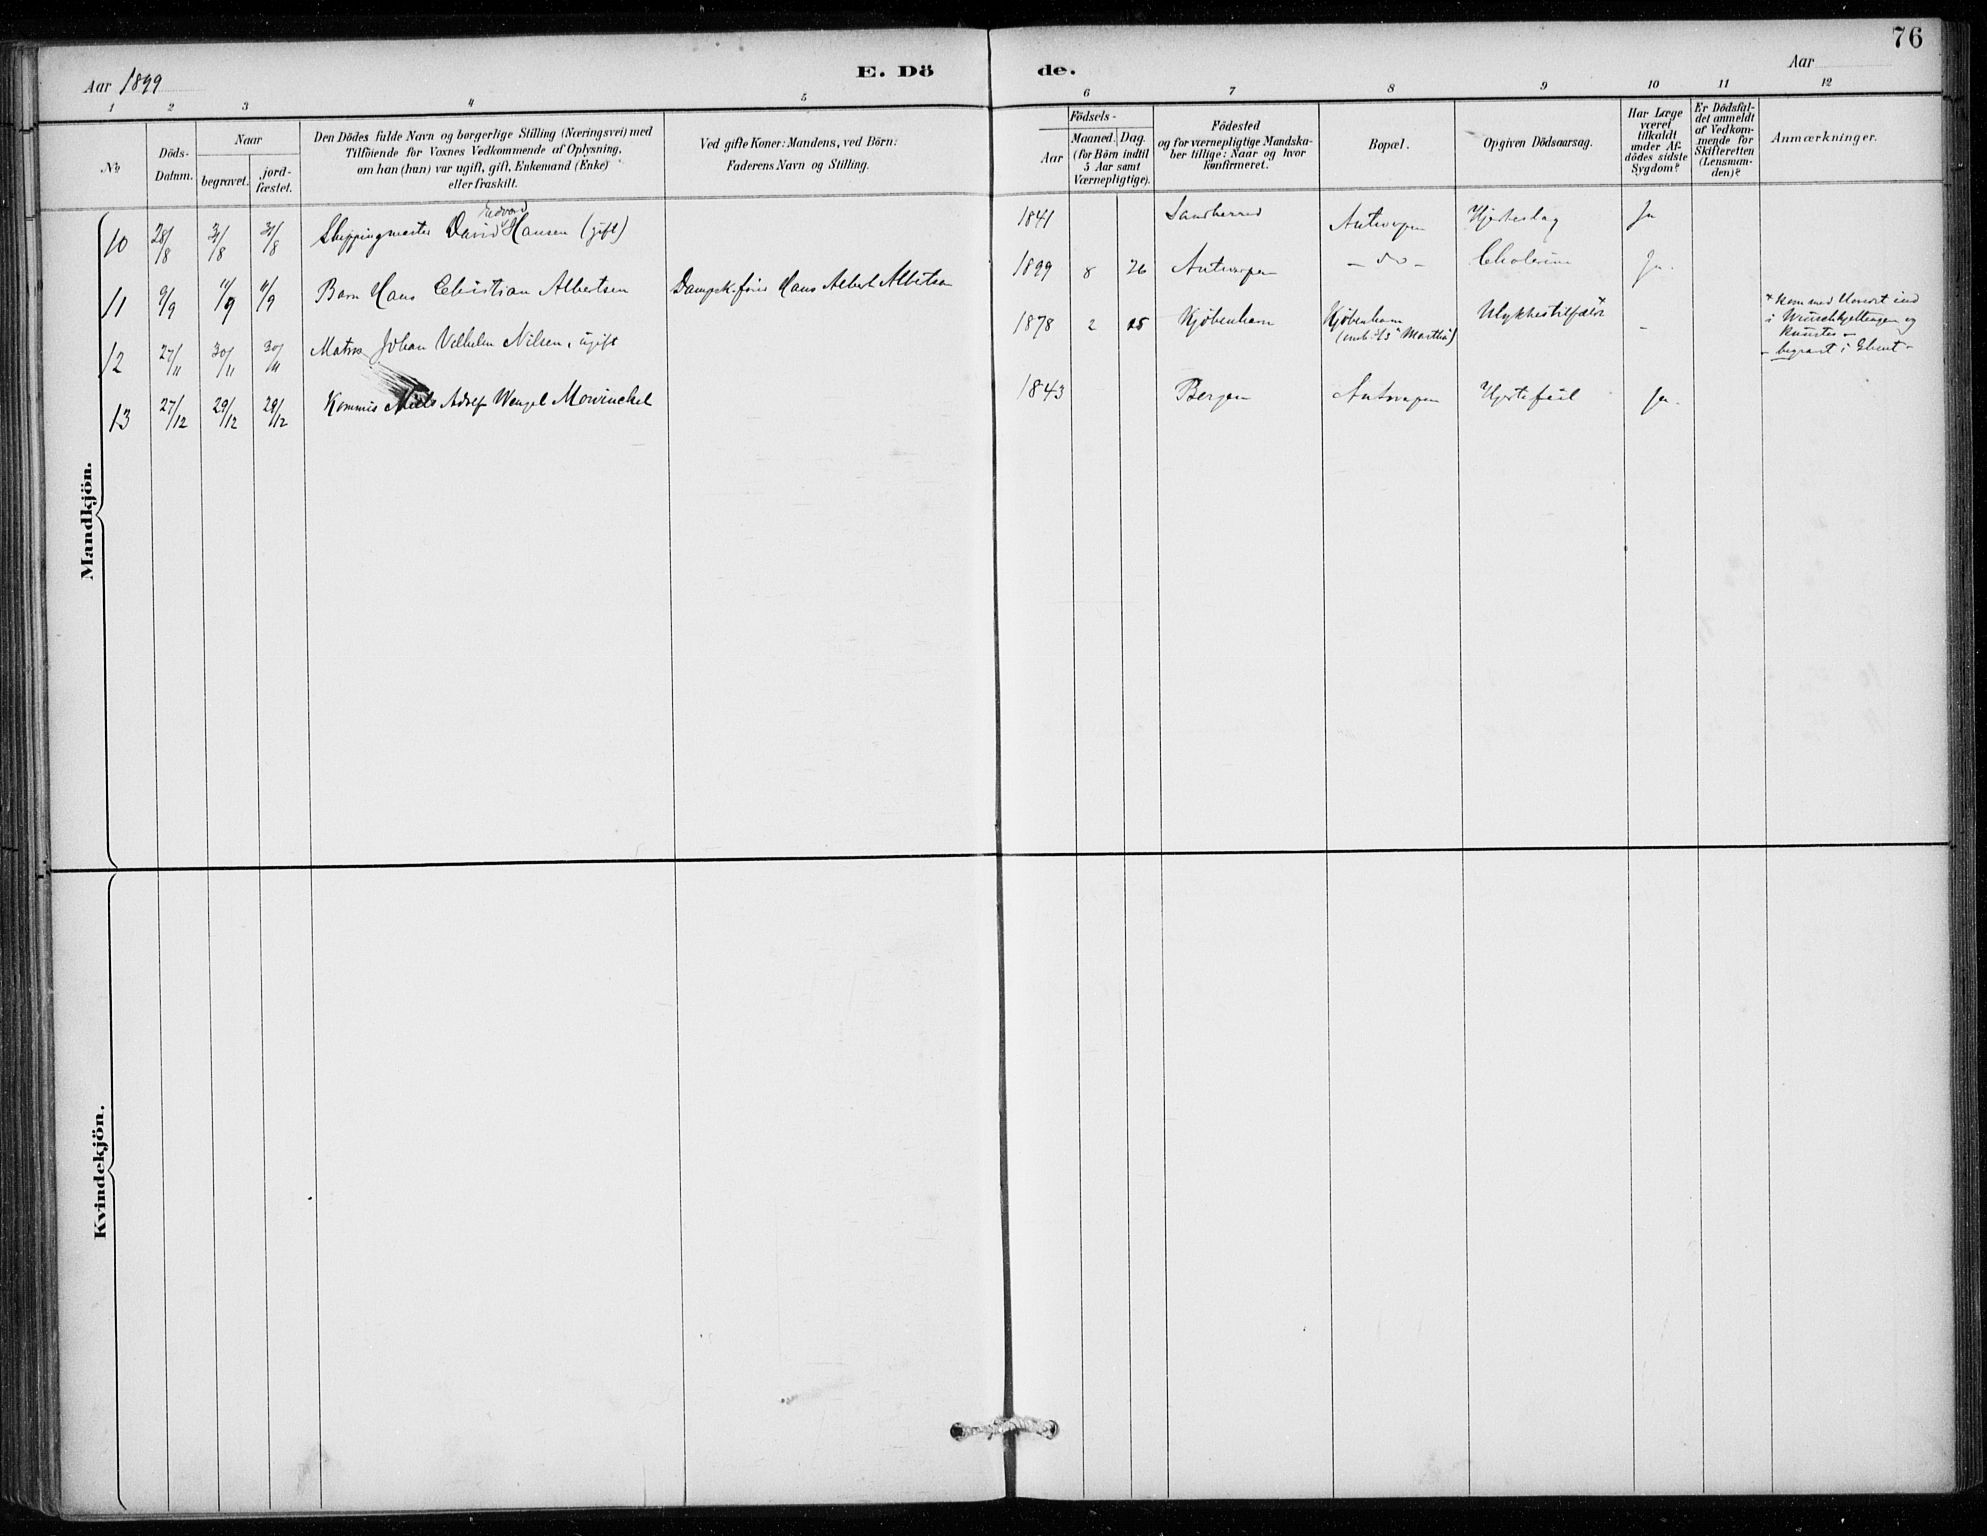 76
Aar 1899
E. Dö de.
Aar
1 2 3 4 5 6 7 8 9 10 11 12
No
Döds-
Datum.
Naar
begravet.
jord-
fæstet.
Den Dödes fulde Navn og borgerlige Stilling (Næringsvei) med
Tilföiende for Voxnes Vedkommende af Oplysning,
om han (hun) var ugift, gift, Enkemand (Enke)
eller fraskilt.
Ved gifte Koner: Mandens, ved Börn:
Faderens Navn og Stilling.
Födsels-
Aar
Maaned. Dag.
(for Börn indtil
5 Aar samt
Værnepligtige).
Födested
og for værnepligtige Mandska-
ber tillige: Naar og hvor
konfirmeret.
Bopæl.
Opgiven Dödsaarsag.
Har Læge
været
tilkaldt
under Af-
dödes sidste
Sygdom?
Er Dödsfal-
det anmeldt
af Vedkom-
mende for
Skifteretten
(Lensman-
den)?
Anmærkninger.
Mandkjön.
Edvard
10 28/8 31/8 31/8 Shippingmaster David Hansen (gift) 1841 Sandherred Antwerpen Hjerteslag Ja
11 9/9 11/9 11/9 Barn Hans Christian Albertsen Dampsk.förer Hans Albert Albertsen 1899 8 26 Antwerpen - do - Cholerine Ja.
12 27/11 30/11 30/11 Matros Johan Vilhelm Nilsen, ugift 1878 2 25 Kjöbenhavn Kjöbenhavn Ulykkestilfælde* -
(omb. S/S "Martha")
* Kom med Hovedet ind
i Winschkjettingen og
knustes -
- begravet i Ghent -
13 27/12 29/12 29/12 Kommis Niels Adolf Wengel Mowinckel 1843 Bergen Antwerpen Hjertefeil Ja.
Kvindekjön.